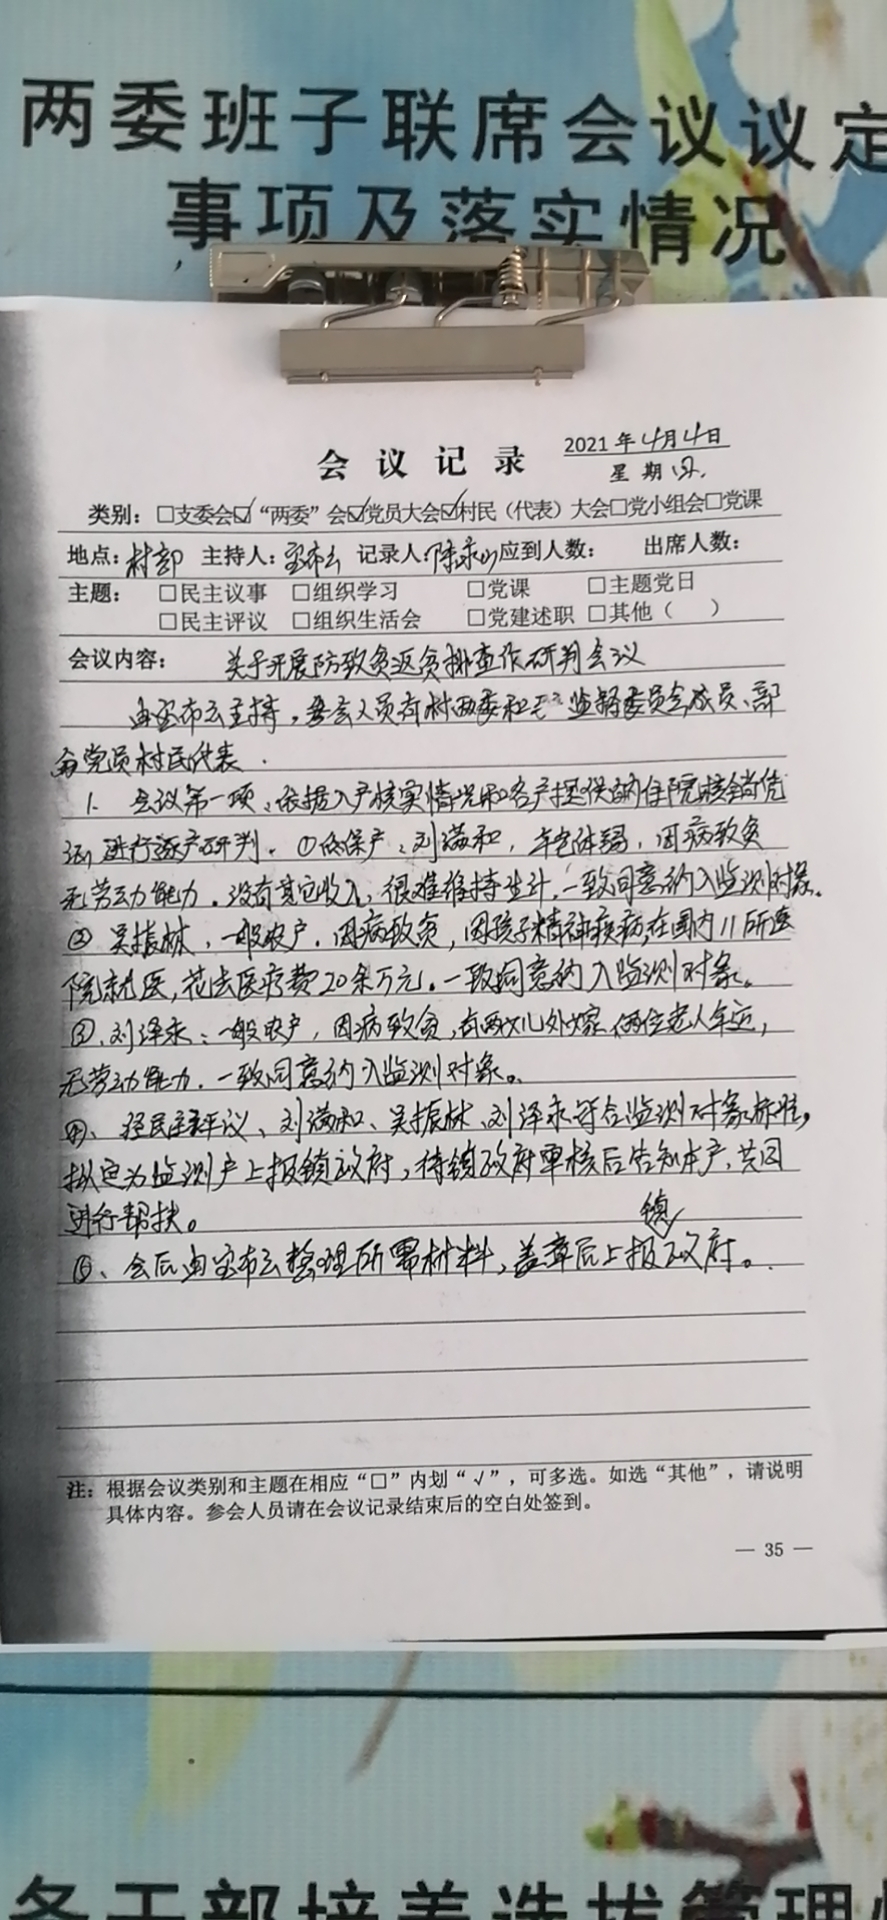 两委班子联席会议议定
事项及落实情况
会议记录
2021年4月4日
星期日.
类别：□支委会☑“两委”会☑党员大会☑村民（代表）大会□党小组会□党课
地点：村部 主持人：宝布云 记录人：陈永山 应到人数： 出席人数：
主题：□民主议事 □组织学习 □党课 □主题党日
□民主评议 □组织生活会 □党建述职 □其他（ ）
会议内容： 关于开展防致贫返贫排查作研判会议
由宝布云主持，参会人员有村两委和 监督委员会成员、部
分党员村民代表．
1. 会议第一项、依据入户核实情况和各户提供的住院核销凭
证，进行逐户研判．①低保户、刘满和，年老体弱，因病致贫
无劳动能力．没有其它收入，很难维持生计．一致同意纳入监测对象．
② 吴振林，一般农户．因病致贫，因孩子精神疾病，在国内11所医
院就医，花去医疗费20余万元。一致同意纳入监测对象。
③、刘泽永：一般农户，因病致贫，有两女儿外嫁，俩位老人年迈，
无劳动能力．一致同意纳入监测对象。
④、经民主评议、刘满和、吴振林、刘泽永符合监测对象标准，
拟定为监测户上报镇政府，待镇政府审核后告知本户，共同
进行帮扶。
⑤、会后由宝布云整理所需材料，盖章后上报镇政府。
注：根据会议类别和主题在相应“□”内划“√”，可多选。如选“其他”，请说明
具体内容。参会人员请在会议记录结束后的空白处签到。
— 35 —
务干部培养选拔管理